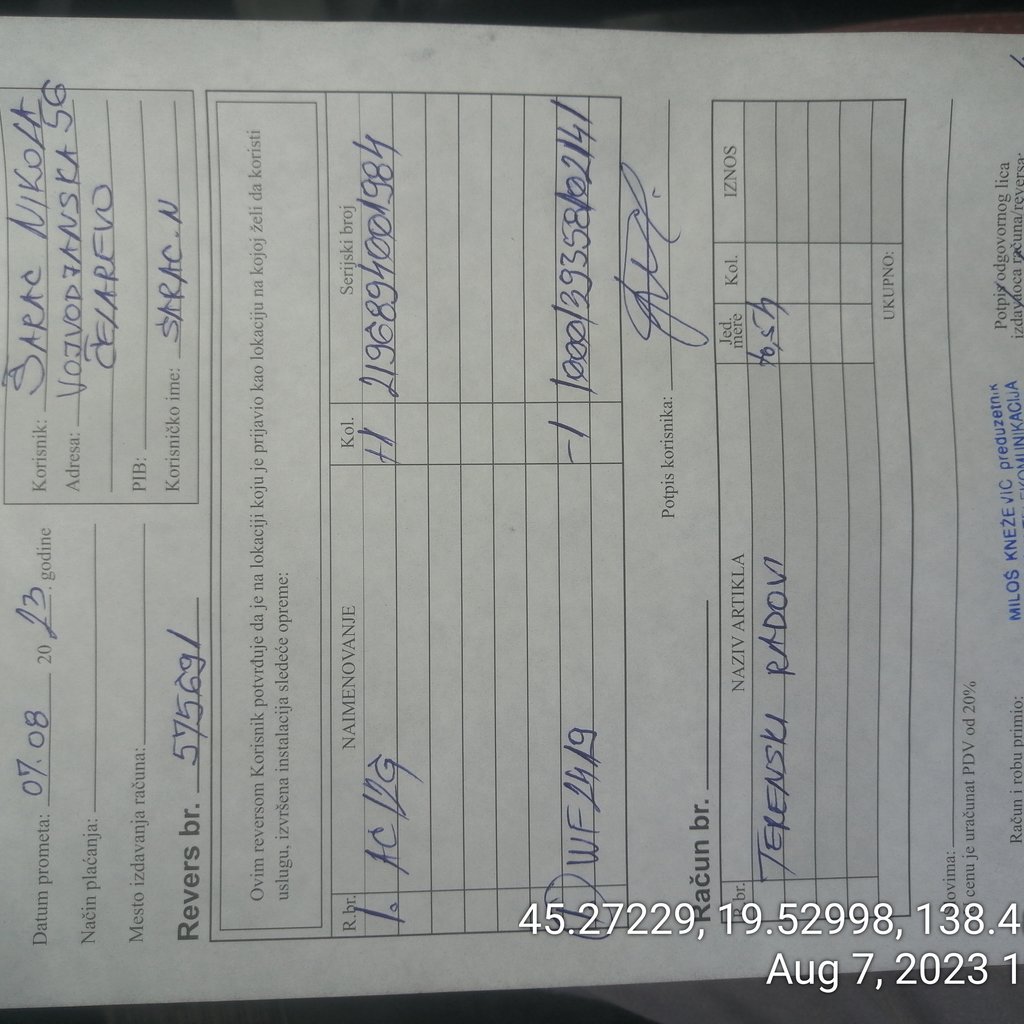 Datum prometa: 07.08 20 23. godine
Način plaćanja:
Mesto izdavanja računa:
Korisnik: ŠARAC NIKOLA
Adresa: VOJVODJANSKA 56
ČELAREVO
PIB:
Korisničko ime: SARAC.N
Revers br. 575691
Ovim reversom Korisnik potvrđuje da je na lokaciji koju je prijavio kao lokaciju na kojoj želi da koristi
uslugu, izvršena instalacija sledeće opreme:
R.br. NAIMENOVANJE Kol. Serijski broj
1. AC +1 2196894001984
1) WF2419 -1
Potpis korisnika:
Račun br.
R.br. NAZIV ARTIKLA Jed. mere Kol. IZNOS
TERENSKI RADOVI
UKUPNO:
cenu je uračunat PDV od 20%
Račun i robu primio:
MILOŠ KNEŽEVIĆ preduzetnik
Potpis odgovornog lica
izdavaoca računa/reversa:
45.27229, 19.52998, 138.4
Aug 7, 2023 1